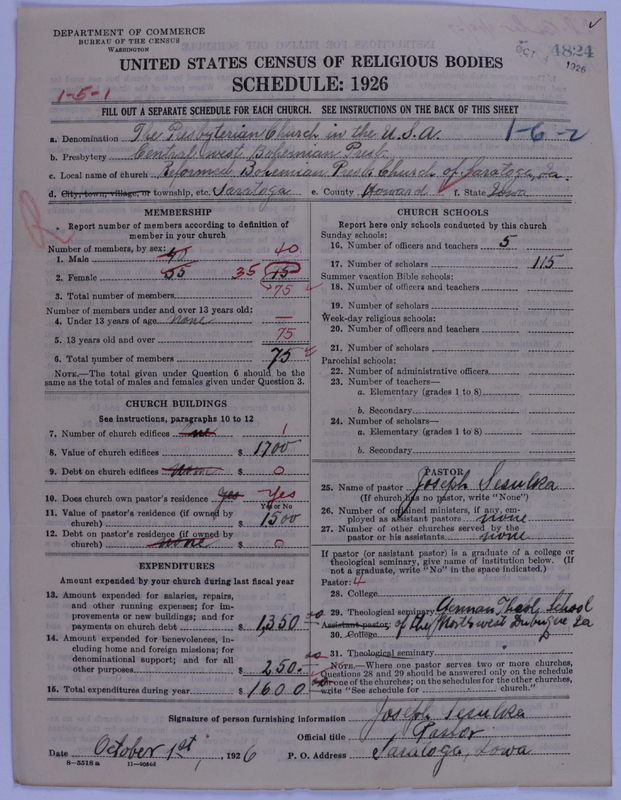 DEPARTMENT OF COMMERCE
BUREAU OF THE CENSUS
WASHINGTON
OCT 5 1926
4824
UNITED STATES CENSUS OF RELIGIOUS BODIES
SCHEDULE: 1926
1-5-1
FILL OUT A SEPARATE SCHEDULE FOR EACH CHURCH. SEE INSTRUCTIONS ON THE BACK OF THIS SHEET
a. Denomination The Presbyterian Church in the U.S.A. 1-6-2
b. Presbytery Central west Bohemian Presb.
c. Local name of church Reformed Bohemian Presb. Church of Saratoga, Ia.
d. City, town, village, or township, etc. Saratoga e. County Howard f. State Iowa
MEMBERSHIP
Report number of members according to definition of member in your church
Number of members, by sex:
1. Male 40
2. Female 35 35 75
3. Total number of members 75
Number of members under and over 13 years old:
4. Under 13 years of age none —
5. 13 years old and over 75
6. Total number of members 75
NOTE.—The total given under Question 6 should be the same as the total of males and females given under Question 3.
CHURCH BUILDINGS
See instructions, paragraphs 10 to 12
7. Number of church edifices one 1
8. Value of church edifices $ 1700
9. Debt on church edifices none $ 0
10. Does church own pastor's residence yes Yes
Yes or No
11. Value of pastor's residence (if owned by church) $ 1500
12. Debt on pastor's residence (if owned by church) none $ 0
EXPENDITURES
Amount expended by your church during last fiscal year
13. Amount expended for salaries, repairs, and other running expenses; for improvements or new buildings; and for payments on church debt $ 1,350.00
14. Amount expended for benevolences, including home and foreign missions; for denominational support; and for all other purposes $ 250.00
15. Total expenditures during year $ 1600.00
CHURCH SCHOOLS
Report here only schools conducted by this church
Sunday schools:
16. Number of officers and teachers 5
17. Number of scholars 115
Summer vacation Bible schools:
18. Number of officers and teachers
19. Number of scholars
Week-day religious schools:
20. Number of officers and teachers
21. Number of scholars
Parochial schools:
22. Number of administrative officers
23. Number of teachers—
a. Elementary (grades 1 to 8)
b. Secondary
24. Number of scholars—
a. Elementary (grades 1 to 8)
b. Secondary
PASTOR
25. Name of pastor Joseph Sesulka
(If church has no pastor, write "None")
26. Number of ordained ministers, if any, employed as assistant pastors none
27. Number of other churches served by the pastor or his assistants none
If pastor (or assistant pastor) is a graduate of a college or theological seminary, give name of institution below. (If not a graduate, write "No" in the space indicated.)
Pastor: 4
28. College
29. Theological seminary German Theol. School
Assistant pastor: of the Northwest Dubuque Ia
30. College
31. Theological seminary
NOTE.—Where one pastor serves two or more churches, Questions 28 and 29 should be answered only on the schedule for one of the churches; on the schedules for the other churches, write "See schedule for church."
Signature of person furnishing information Joseph Sesulka
Official title Pastor
Date October 1st, 1926 P. O. Address Saratoga, Iowa
8-5518 a